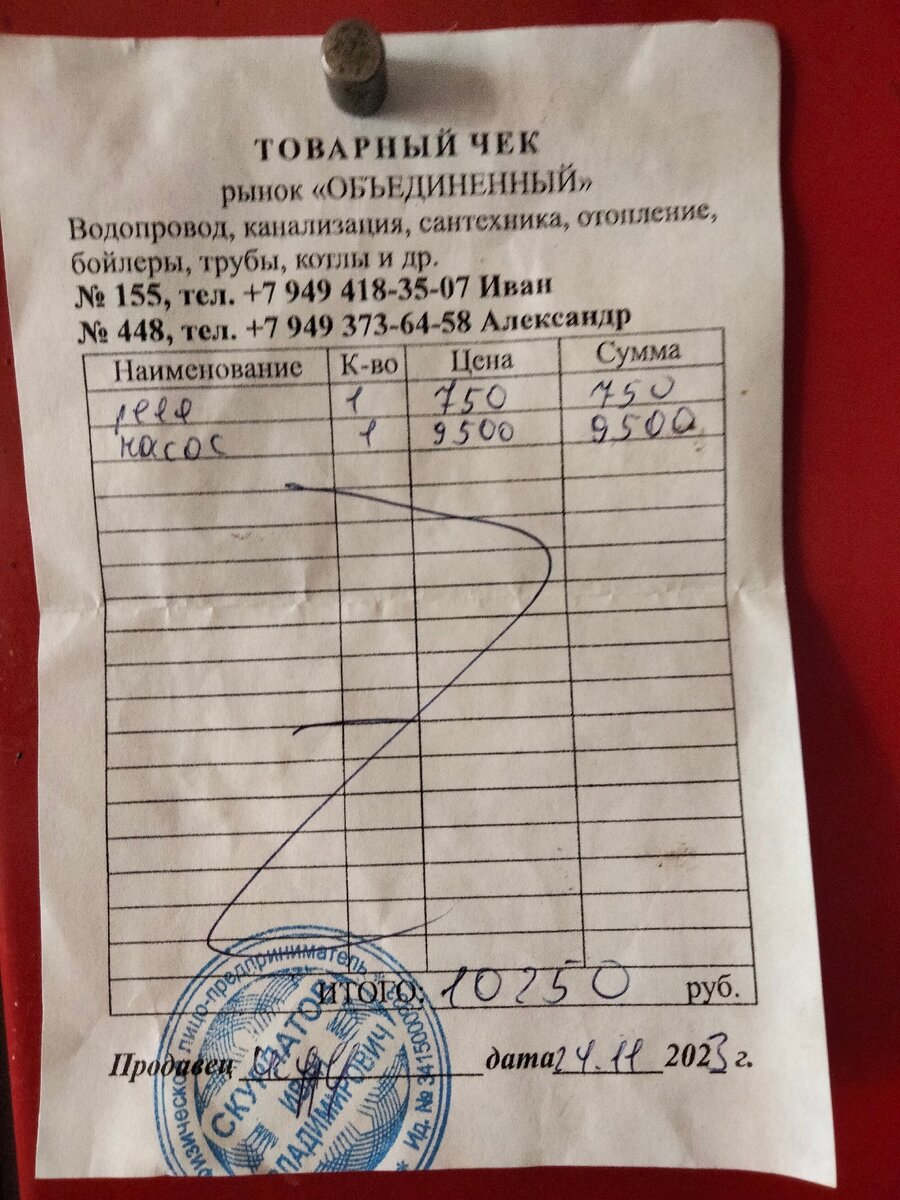 ТОВАРНЫЙ ЧЕК
рынок «ОБЪЕДИНЕННЫЙ»
Водопровод, канализация, сантехника, отопление,
бойлеры, трубы, котлы и др.
№ 155, тел. +7 949 418-35-07 Иван
№ 448, тел. +7 949 373-64-58 Александр
Наименование К-во Цена Сумма
реле 1 750 750
насос 1 9500 9500
ИТОГО: 10250 руб.
Продавец дата 24.11 2023 г.
лицо-предприниматель
СКУ
ВЛАДИМИРОВИЧ
Ид. №